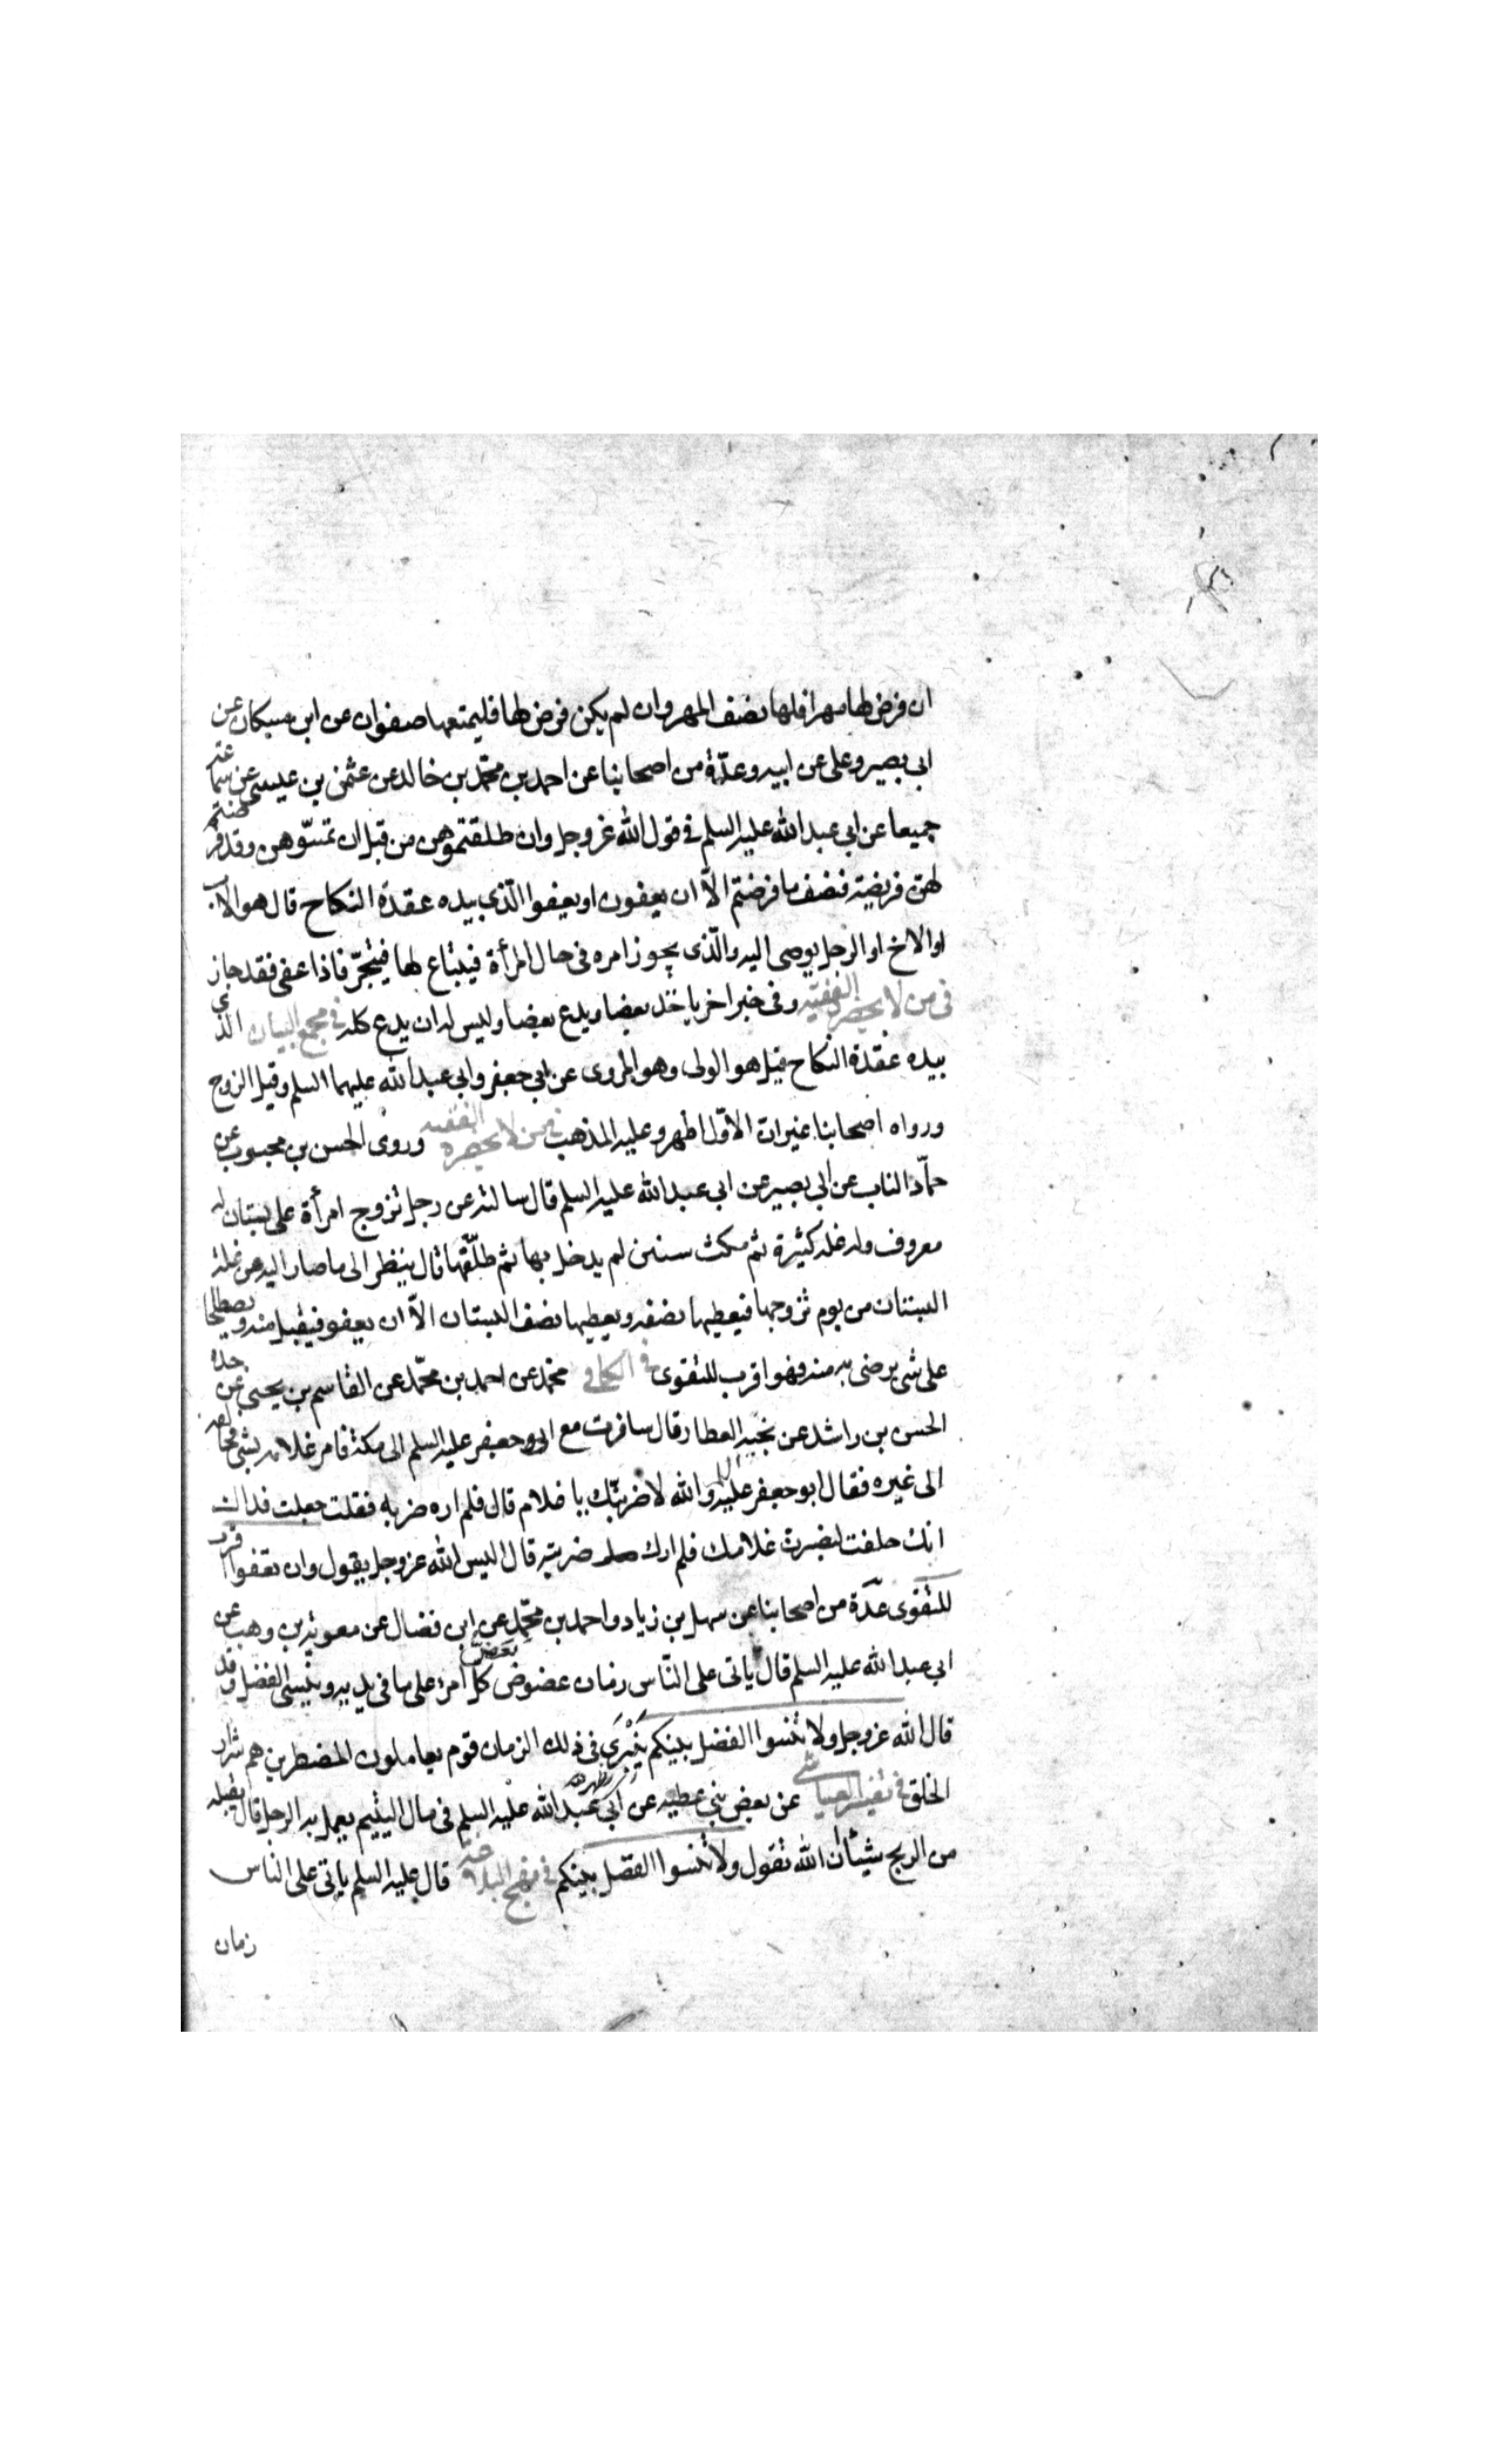 ان فرض لها مهرا فلها نصف المهر وان لم يكن فرض لها فليمتعها صفوان عن ابن مسكان عن
ابى بصير وعلى عن ابيه وعدّة من اصحابنا عن احمد بن محمّد بن خالد عن عثمن بن عيسى عن سماعة
جميعا عن ابى عبد الله عليه السلم فى قول الله عز وجل وان طلقتموهن من قبل ان تمسّوهن وقد فرضتم
لهنّ فريضة فنصف ما فرضتم الاّ ان يعفون او يعفوا الّذى بيده عقدة النكاح قال هو الاب
او الاخ او الرجل يوصى اليه والّذى يجوز امره فى حال المرأة فيبتاع لها فيتّجر فاذا عفى فقد جاز
فى من لا يحضره الفقيه وفى خبر اخر ياخذ بعضا ويدع بعضا وليس له ان يدع كله فى مجمع البيان الذى
بيده عقدة النكاح قيل هو الولى وهو المروى عن ابى جعفر وابى عبد الله عليهما السلم وقيل الزوج
ورواه اصحابنا غير ان الاوّل اظهر وعليه المذهب فى من لا يحضره الفقيه وروى الحسن بن محبوب عن
حمّاد الناب عن ابى بصير عن ابى عبد الله عليه السلم قال سالته عن رجل تزوج امرأة على بستان له
معروف وله غلة كثيرة ثم مكث سنين لم يدخل بها ثم طلّقها قال ينظر الى ما صار اليه من غلة
البستان من يوم تزوجها فيعطيها نصفه ويعطيها نصف البستان الاّ ان يعفو فيقبل منه ويصطلحا
على شى يرضى به منه فهو اقرب للتقوى فى الكافى محمّد عن احمد بن محمّد عن القاسم بن يحيى عن جده
الحسن بن راشد عن نجيه العطار قال سافرت مع ابى جعفر عليه السلم الى مكة فامر غلامه بشى فخالفه
الى غيره فقال ابو جعفر عليه السلم والله لاضربنّك يا غلام قال فلم اره ضربه فقلت جعلت فداك
انك حلفت لتضربن غلامك فلم ارك ضربته قال اليس الله عز وجل يقول وان تعفوا اقرب
للتقوى عدّة من اصحابنا عن سهل بن زياد واحمد بن محمّد عن ابن فضال عن معوية بن وهب عن
ابى عبد الله عليه السلم قال ياتى على النّاس زمان عضوض يعض كل امرئ على ما فى يديه وينسى الفضل وقد
قال الله عز وجل ولا تنسوا الفضل بينكم ينبرى فى ذلك الزمان قوم يعاملون المضطرين هم شرار
الخلق فى تفسير العياشى عن بعض بنى عطيه عن ابى عبد الله عليه السلم فى مال اليتيم يعمل به الرجل قال يقبله
من الربح شيئا ان الله يقول ولا تنسوا الفضل بينكم فى نهج البلاغة قال عليه السلم ياتى على الناس
زمان